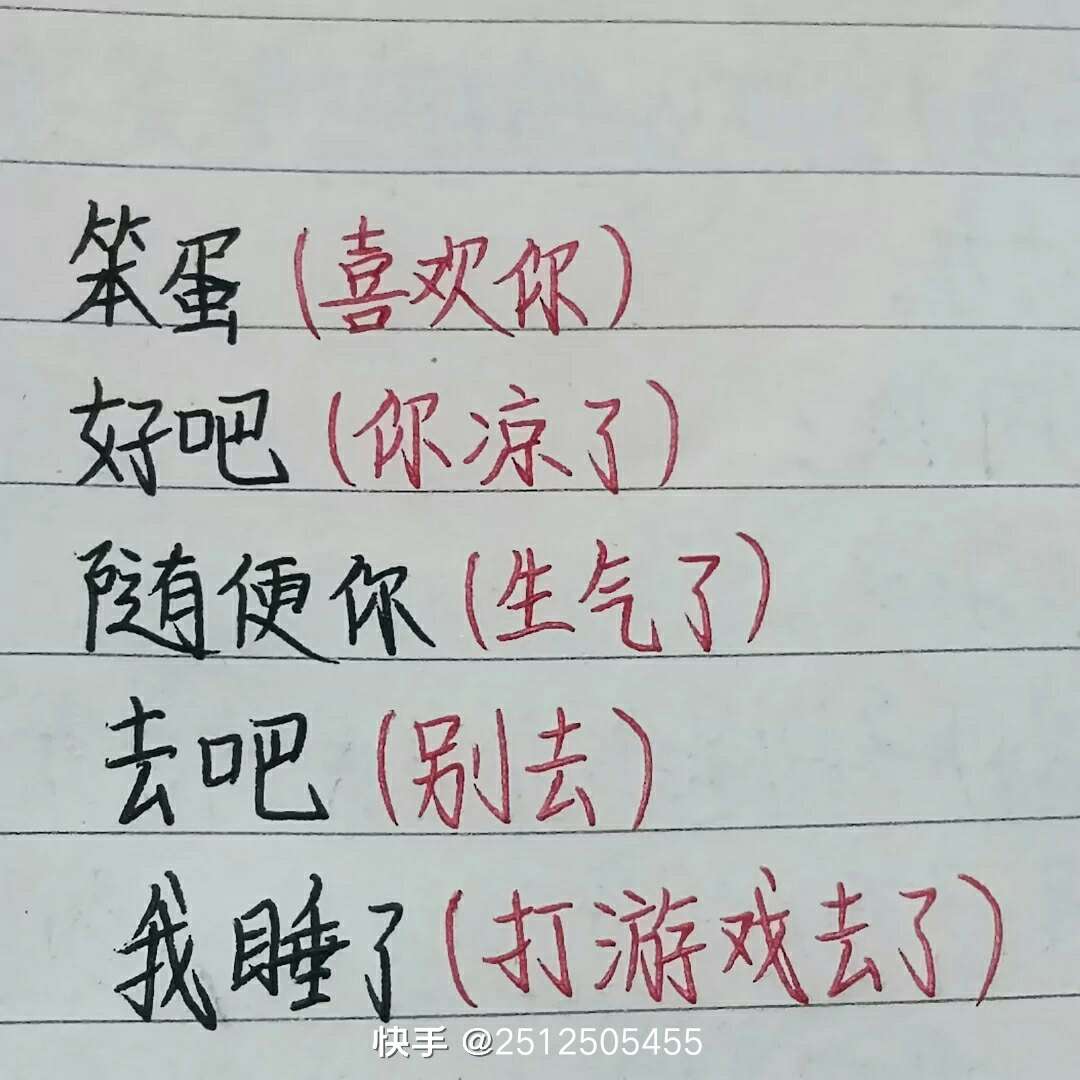 笨蛋(喜欢你)
好吧(你凉了)
随便你(生气了)
去吧(别去)
我睡了(打游戏去了)
快手 @2512505455